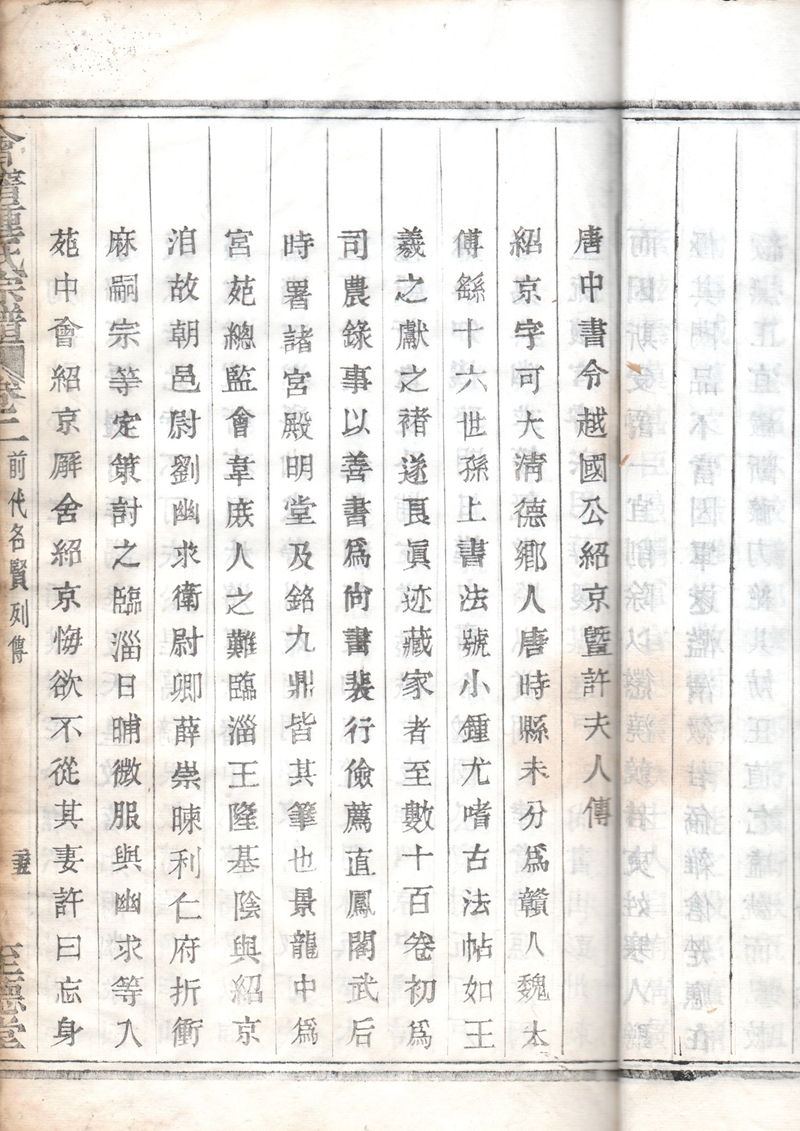 唐中書令越國公紹京暨許夫人傳
紹京字可大清德鄉人唐時縣未分為贛人魏太
傅繇十六世孫上書法號小鍾尤嗜古法帖如王
羲之獻之褚遂良眞迹藏家者至數十百卷初為
司農錄事以善書為尚書裴行儉薦直鳳閣武后
時署諸宮殿明堂及銘九鼎皆其筆也景龍中為
宮苑總監會韋庶人之難臨淄王隆基陰與紹京
洎故朝邑尉劉幽求衛尉卿薛崇暕利仁府折衝
麻嗣宗等定策討之臨淄日晡微服與幽求等入
苑中會紹京廨舍紹京悔欲不從其妻許曰忘身
會稽鍾氏宗譜
卷之二
前代名賢列傳
至德堂